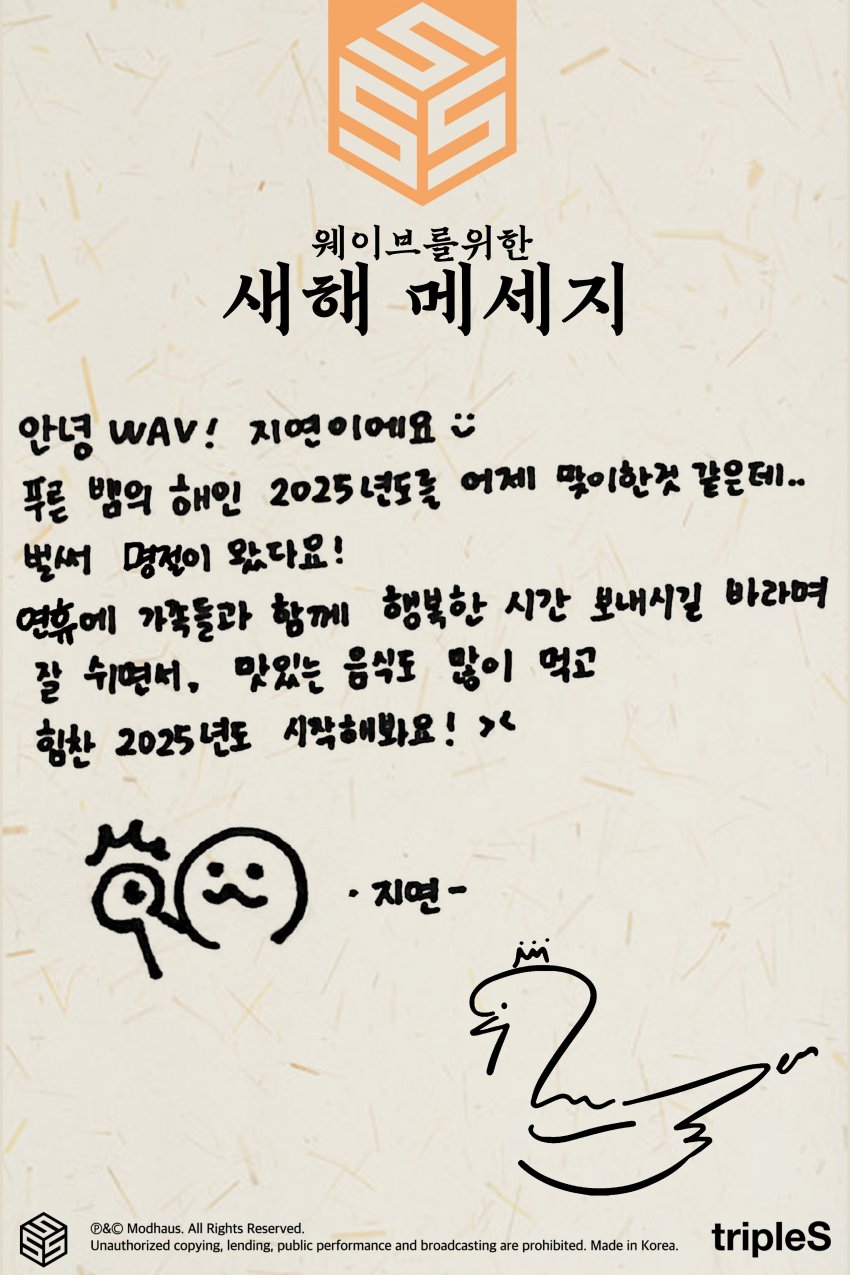 웨이브를위한
새해 메세지
안녕 WAV! 지연이에요 :)
푸른 뱀의 해인 2025년도를 어제 맞이한것 같은데..
벌써 명절이 왔다요!
연휴에 가족들과 함께 행복한 시간 보내시길 바라며
잘 쉬면서, 맛있는 음식도 많이 먹고
힘찬 2025년도 시작해봐요! ><
· 지연 -
SSS
℗&© Modhaus. All Rights Reserved.
Unauthorized copying, lending, public performance and broadcasting are prohibited. Made in Korea.
tripleS